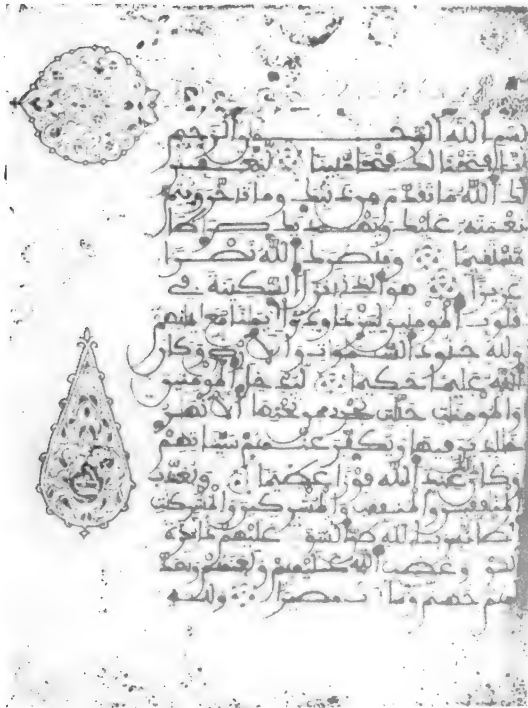 بسم الله الرحمن الرحيم
انا فتحنا لك فتحا مبينا ليغفر
لك الله ما تقدم من ذنبك وما تاخر ويتم
نعمته عليك ويهديك صراطا
مستقيما وينصرك الله نصرا
عزيزا هو الذي انزل السكينة في
قلوب المومنين ليزدادوا ايمنا مع ايمنهم
ولله جنود السموات والارض وكان
الله عليما حكيما ليدخل المومنين
والمومنات جنات تجري من تحتها الانهر
خلدين فيها ويكفر عنهم سيئاتهم
وكان ذلك عند الله فوزا عظيما ويعذب
المنفقين والمنفقت والمشركين والمشركت
الظانين بالله ظن السوء عليهم دائرة
السوء وغضب الله عليهم ولعنهم واعد
لهم جهنم وساءت مصيرا ولله